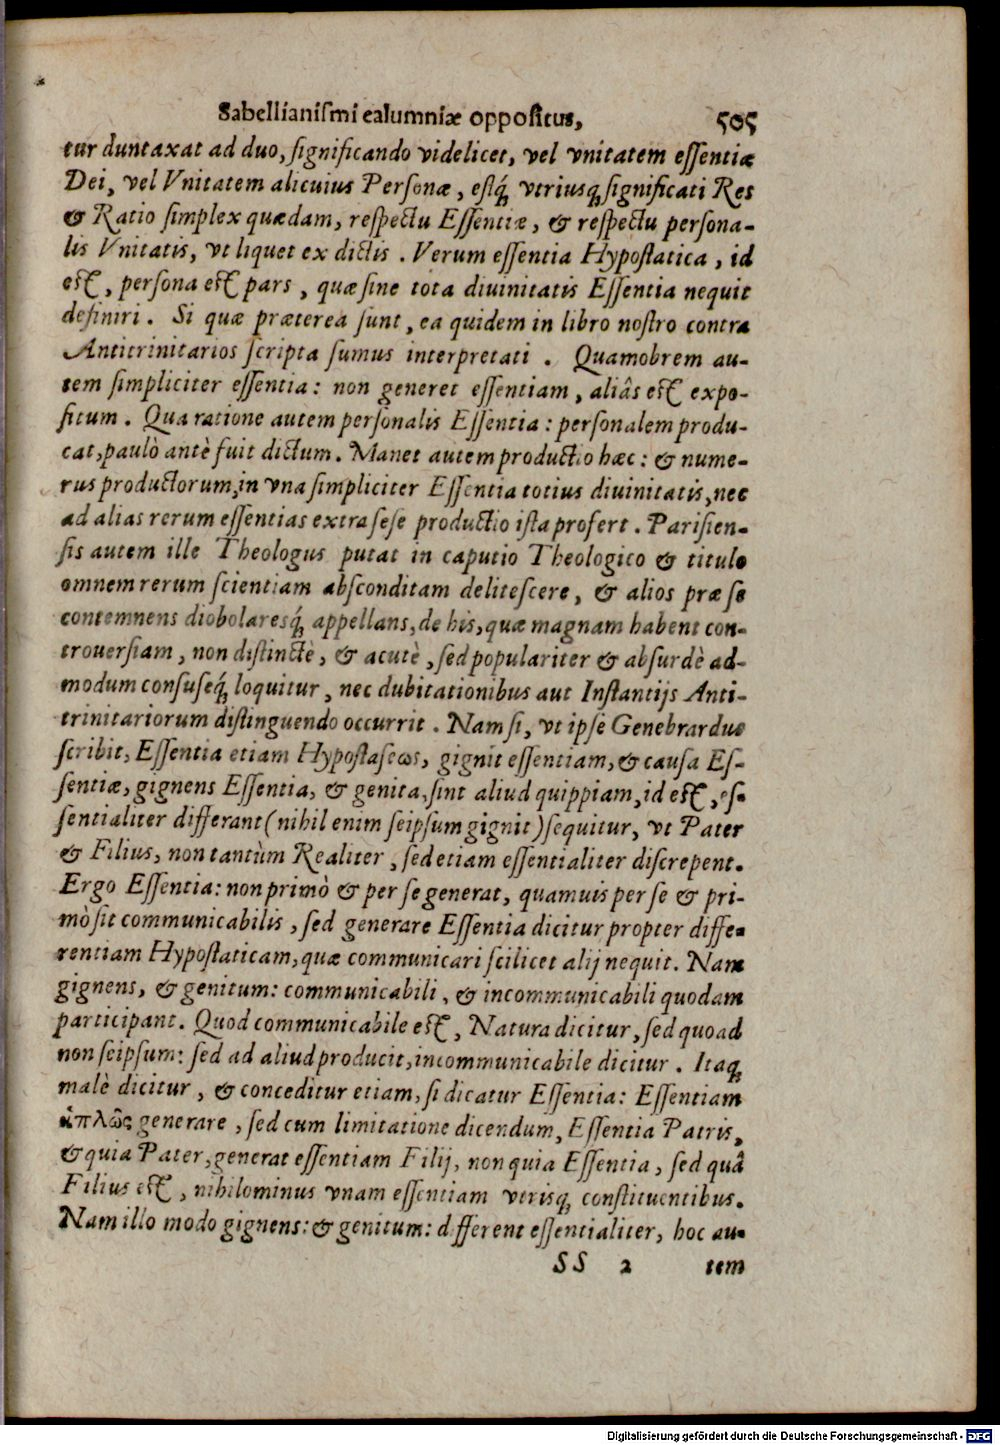 Sabellianiſmi calumniæ oppoſitus, 505
tur duntaxat ad duo, ſignificando videlicet, vel vnitatem eſſentiæ
Dei, vel Vnitatem alicuius Perſonæ, eſtq́ vtriusq; ſignificati Res
& Ratio ſimplex quædam, reſpectu Eſſentiæ, & reſpectu perſona-
lis Vnitatis, vt liquet ex dictis. Verum eſſentia Hypoſtatica, id
eſt, perſona eſt pars, quæ ſine tota diuinitatis Eſſentia nequit
definiri. Si quæ præterea ſunt, ea quidem in libro noſtro contra
Antitrinitarios ſcripta ſumus interpretati. Quamobrem au-
tem ſimpliciter eſſentia: non generet eſſentiam, aliâs eſt expo-
ſitum. Qua ratione autem perſonalis Eſſentia: perſonalem produ-
cat, paulò antè fuit dictum. Manet autem productio hæc: & nume-
rus productorum, in vna ſimpliciter Eſſentia totius diuinitatis, nec
ad alias rerum eſſentias extra ſeſe productio iſta profert. Pariſien-
ſis autem ille Theologus putat in caputio Theologico & titulo
omnem rerum ſcientiam abſconditam deliteſcere, & alios præ ſe
contemnens diobolaresq́ appellans, de his, quæ magnam habent con-
trouerſiam, non diſtinctè, & acutè, ſed populariter & abſurdè ad-
modum conſuſeq́ loquitur, nec dubitationibus aut Inſtantijs Anti-
trinitariorum diſtinguendo occurrit. Nam ſi, vt ipſe Genebrardus
ſcribit, Eſſentia etiam Hypoſtaſeως, gignit eſſentiam, & cauſa Eſ-
ſentiæ, gignens Eſſentia, & genita, ſint aliud quippiam, id eſt, eſ-
ſentialiter differant (nihil enim ſeipſum gignit) ſequitur, vt Pater
& Filius, non tantùm Realiter, ſed etiam eſſentialiter diſcrepent.
Ergo Eſſentia: non primò & per ſe generat, quamuis per ſe & pri-
mò ſit communicabilis, ſed generare Eſſentia dicitur propter diffe-
rentiam Hypoſtaticam, quæ communicari ſcilicet alij nequit. Nam
gignens, & genitum: communicabili, & incommunicabili quodam
participant. Quod communicabile eſt, Natura dicitur, ſed quoad
non ſeipſum: ſed ad aliud producit, incommunicabile dicitur. Itaq;
malè dicitur, & conceditur etiam, ſi dicatur Eſſentia: Eſſentiam
ἁπλῶς generare, ſed cum limitatione dicendum, Eſſentia Patris,
& quia Pater, generat eſſentiam Filij, non quia Eſſentia, ſed quâ
Filius eſt, nihilominus vnam eſſentiam vtrisq; conſtituentibus.
Nam illo modo gignens: & genitum: different eſſentialiter, hoc au-
SS 2 tem
Digitalisierung gefördert durch die Deutsche Forschungsgemeinschaft - DFG